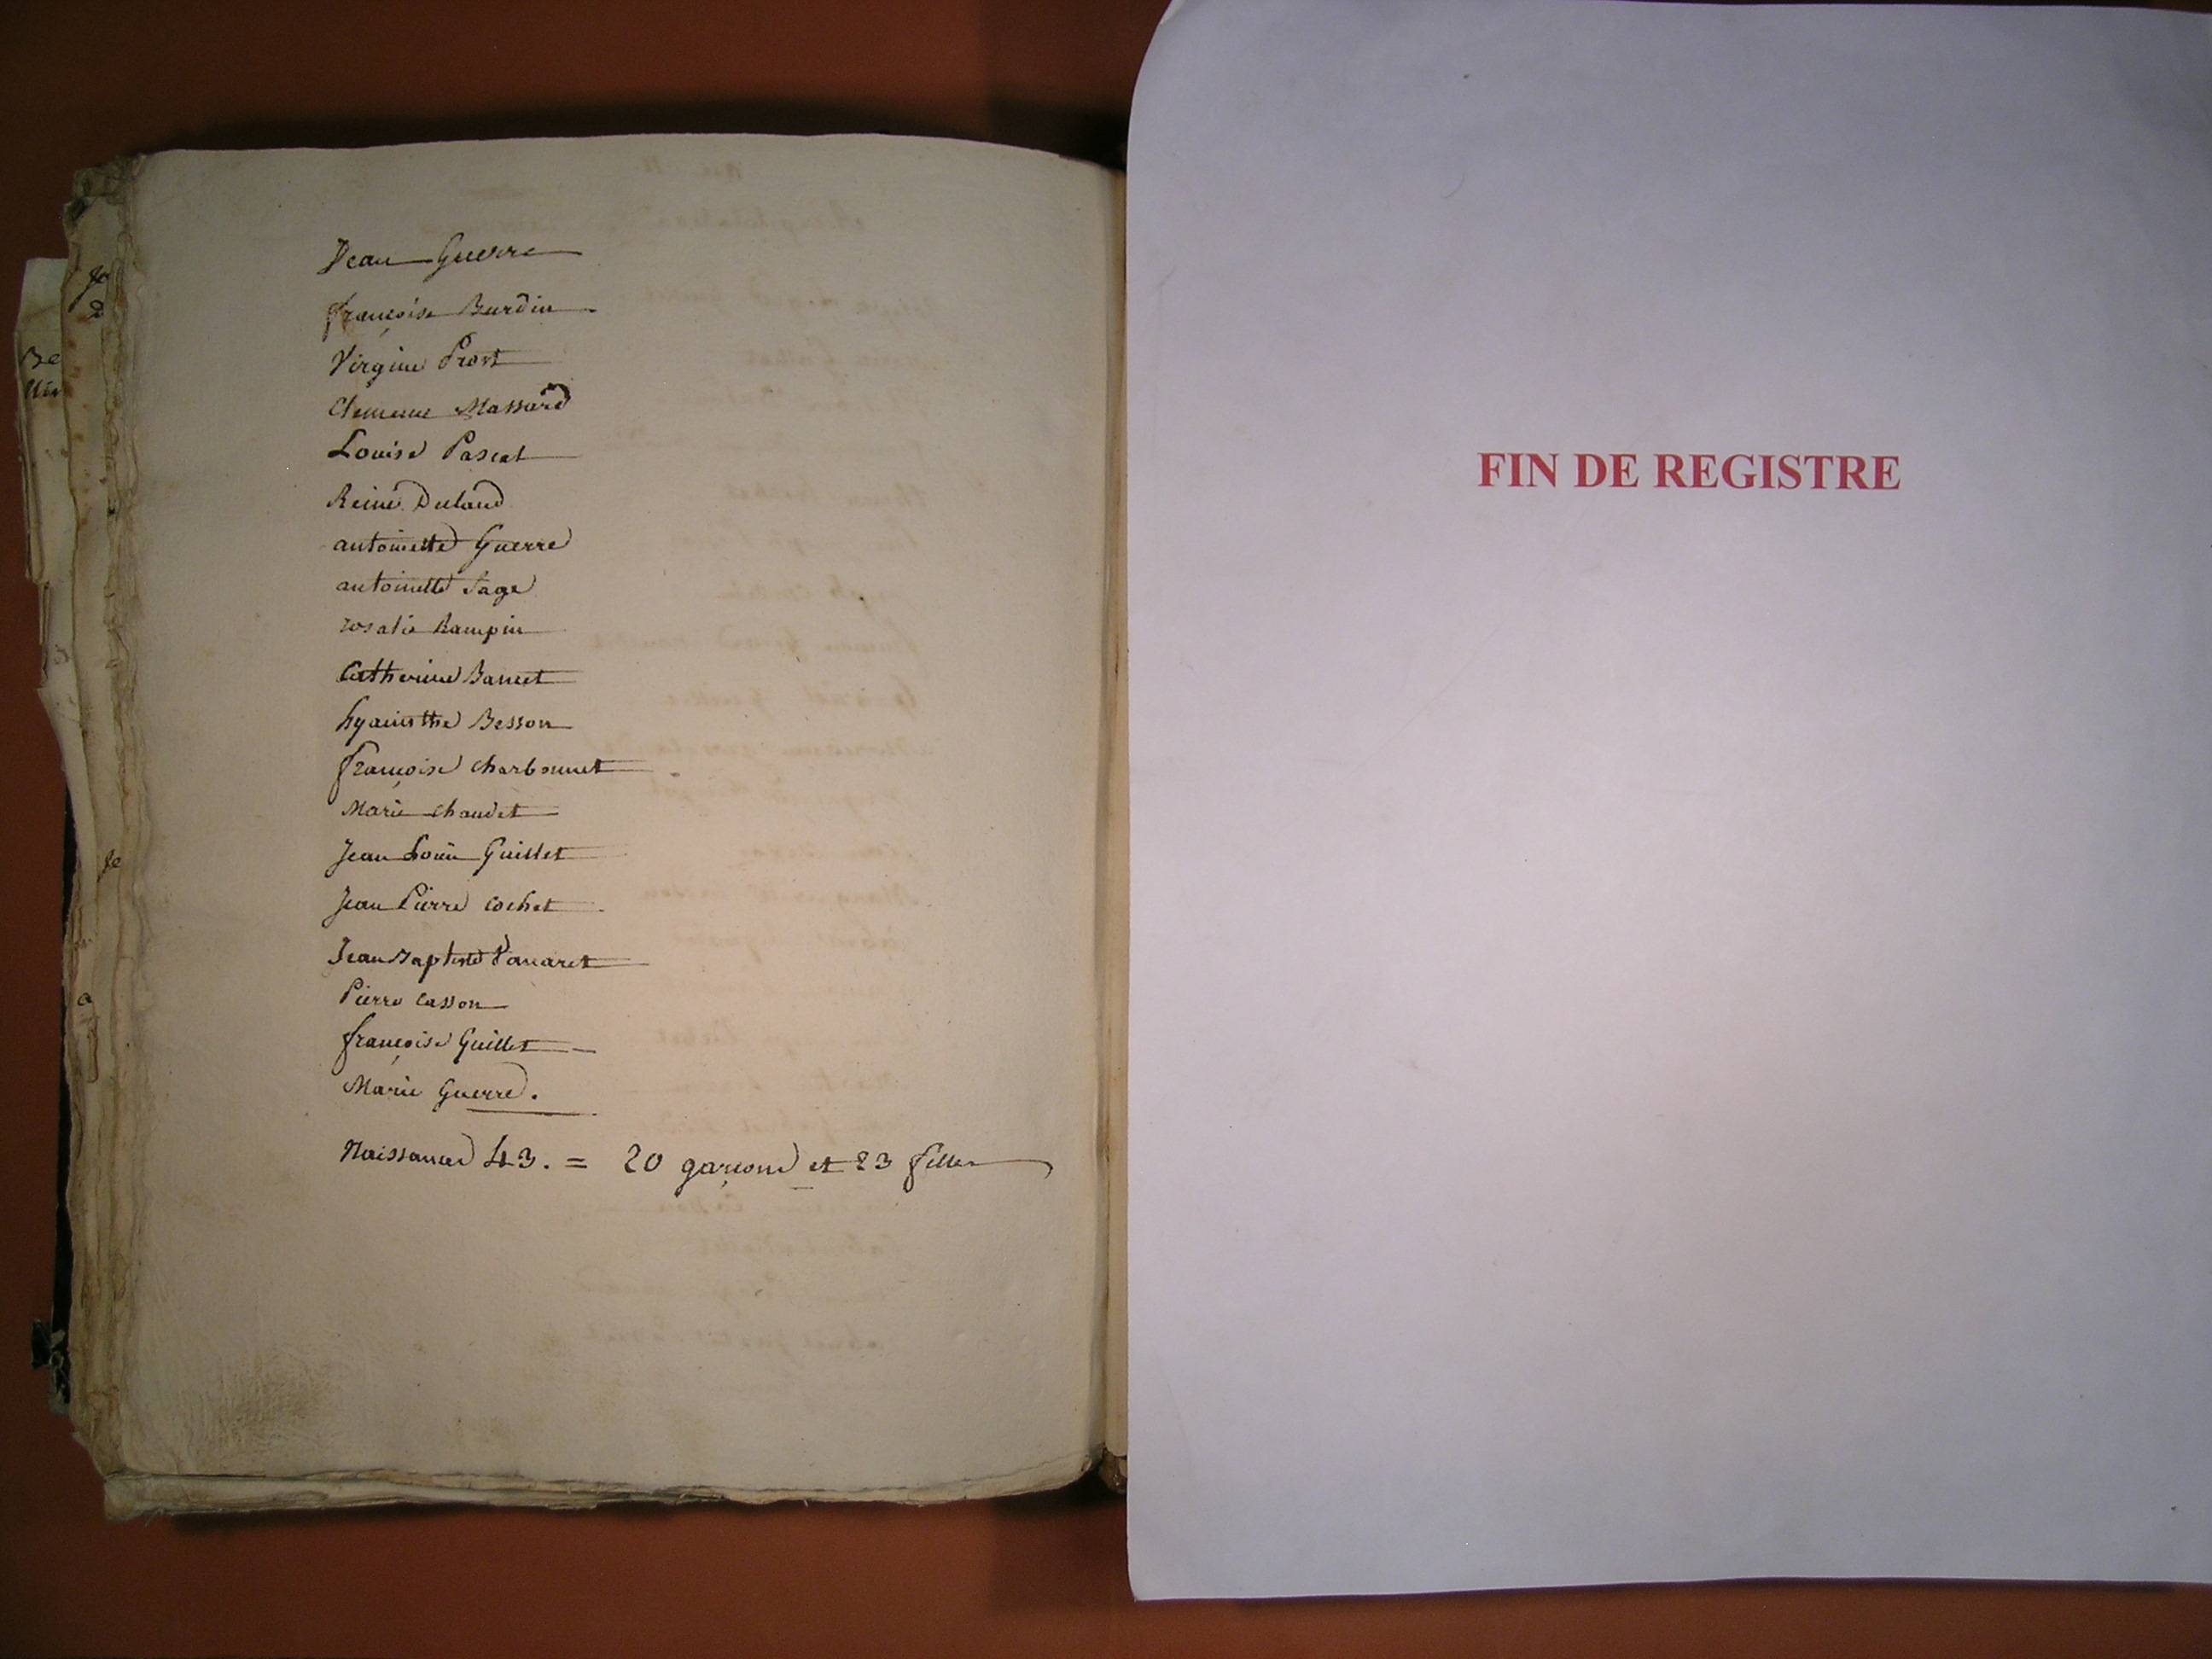 Jean Guerre
françoise Burdin
Virginie Prost
Clemence Massard
Louise Pascal
Reine Duland
antoinette Guerre
antoinette Sage
rosalie Rampin
Catherine Banet
hyacinthe Besson
françoise Charbonnet
Marie Chaudet
Jean Louis Guillet
Jean Pierre Cochet
Jean Baptiste
Pierre Casson
françoise Guillet
Marie Guerre.
Naissances 43. = 20 garçons et 23 filles
FIN DE REGISTRE